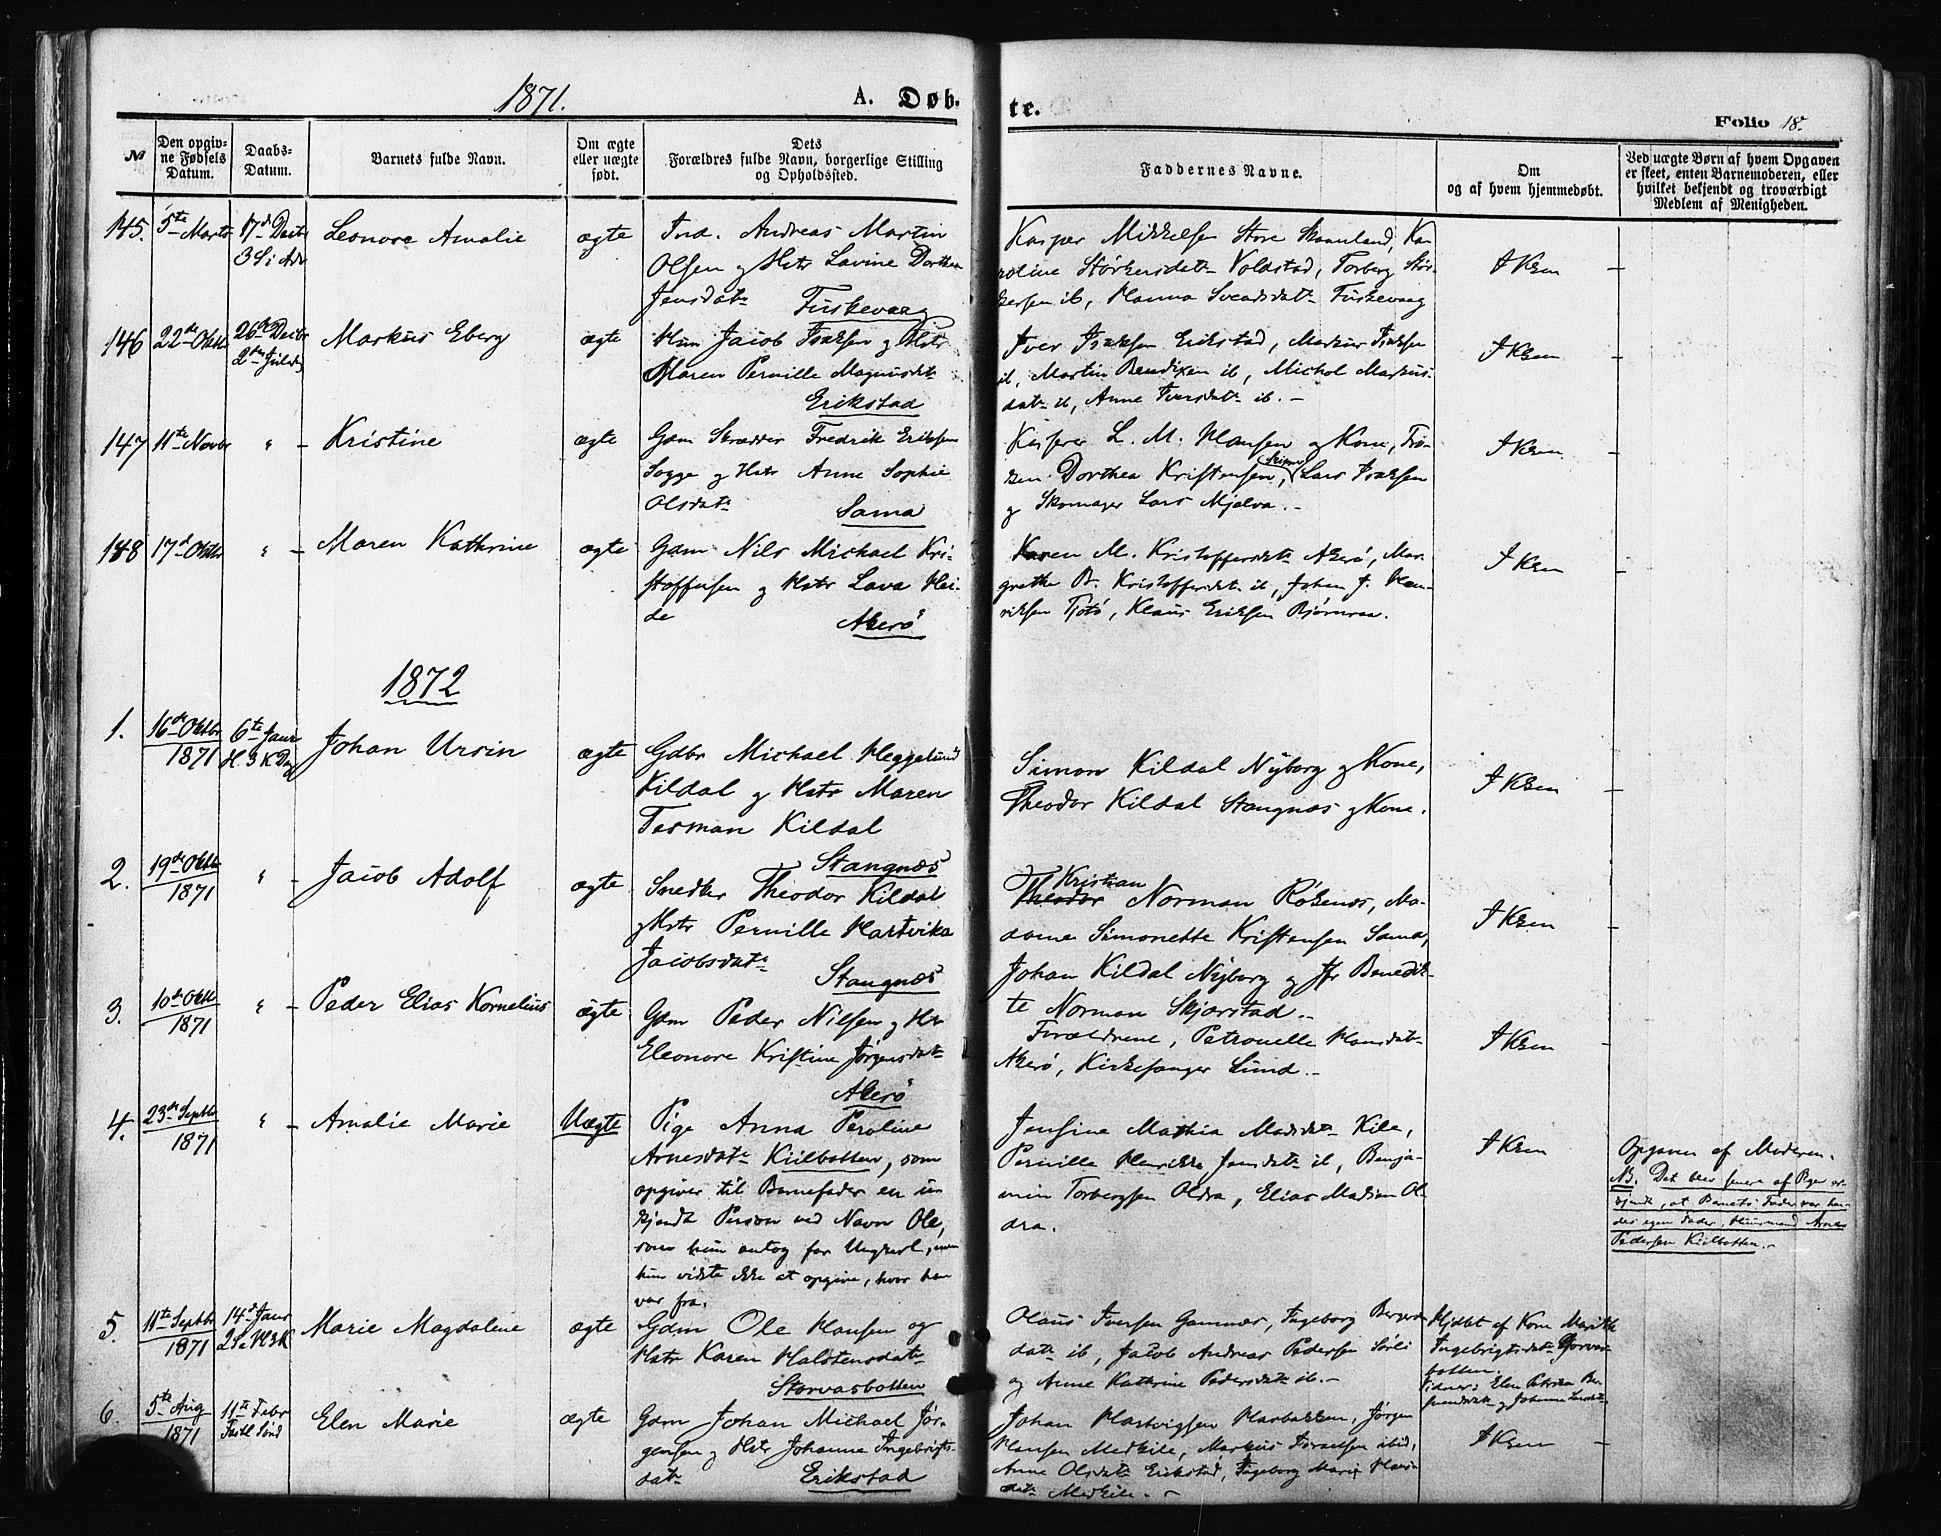 1871.
A. Døb-
te.
Folio 18.
№
Den opgiv-
ne Fødsels
Datum.
Daabs-
Datum.
Barnets fulde Navn.
Om ægte
eller uægte
født.
Dets
Forældres fulde Navn, borgerlige Stilling
og Opholdssted.
Faddernes Navne.
Om
og af hvem hjemmedøbt.
Ved uægte Børn af hvem Opgaven
er skeet, enten Barnemoderen, eller
hvilket bekjendt og troværdigt
Medlem af Menigheden.
145. 5te Marts 17d Decbr
3 S i Adv
Leonora Amalie
ægte
Ind. Andreas Martin
Olsen og Hstr Lavine Dorthea
Jensdatr Fuskevaag
Kasper Mikkelsen Store Skaanland, Ka-
roline Størkersdatr Voldstad, Torberg Stør-
kersen ib, Hanna Sveadsdatr Fuskevaag
I Kken –
146 22de Oktbr 26de Decbr
2den Juled
Markus Eberg
ægte
Hum Jacob Isaksen og Hstr
Maren Pernille Magnusdatr
Erikstad
Iver Isaksen Erikstad, Markus Isaksen
ib, Martin Bendixen ib, Michol Markus-
datr ib, Anne Iversdatr ib. –
I Kken –
147 11te Novbr " –
Kristine
ægte
Gdm Skrædder Fredrik Eriksen
Sogge og Hstr Anne Sophie
Olsdatr Sama
Kasserer L. M. Hansen og Kone, Frø-
ken Dorthea Kristensen, Skipper Lars Isaksen
og Skomager Lars Mjelva. –
I Kken –
148 17d Oktbr " –
Maren Kathrine
ægte
Gdm Nils Michael Kri-
stoffersen og Hstr Lava Hei-
de Akerö
Karen M. Kristoffersdatr Akerö, Mar-
grethe B. Kristoffersdatr ib, Johan J. Hen-
riksen Tjotö, Klaus Eriksen Bjørnraa.
I Kken –
1872
1. 16de Oktbr
1871
6te Janr
H. 3 K Dag
Johan Ursin
ægte
Gdbr Michael Heggelund
Kildal og Hstr Maren
Tesman Kildal
Stangnæs
Simon Kildal Nyborg og Kone,
Theodor Kildal Stangnæs og Kone.
I Kken –
2. 19de Oktbr
1871
" –
Jacob Adolf
ægte
Snedker Theodor Kildal
og Hstr Pernille Hartvika
Jacobsdatr
Stangnæs
Kristian
Theodor Norman Røkenæs, Ma-
dame Simonette Kristensen Sama,
Johan Kildal Nyborg og Jfr Benedik-
te Norman Skjærstad. –
I Kken –
3. 10de Oktbr
1871
" –
Peder Elias Kornelius
ægte
Gdm Peder Nilsen og Hstr
Eleonore Kristine Jørgensdatr
Akerö
Forældrene, Petronelle Hansdatr
Akerö, Kirkesanger Lund. –
I Kken –
4. 23de Septbr
1871
" –
Amalie Marie
Uægte
Pige Anna Peroline
Arnesdatr Kiilbotten, som
opgiver til Barnefader en u-
kjendt Person ved Navn Ole,
som hun antog for Ungkarl, men
hun vidste ikke at opgive, hvor han
var fra.
Jensine Mathia Madsdatr Kile,
Pernille Henrikke Jensdatr ib, Benja-
min Torbergsen Oldra, Elias Madsen Ol-
dra.
I Kken
Opgaven af Moderen.
NB. Det blev senere af Pigen er-
kjendt, at Barnets Fader var hen-
des egen Fader, Huusmand Arne
Pedersen Kiilbotten. –
5. 11te Septbr
1871
14d Janr
2 S e H3K
Marie Magdalene
ægte
Gdm Ole Hansen og
Hstr Karen Halstensdatr
Storvasbotten
Olaus Iversen Gamnes, Ingeborg Berger-
datr ib, Jacob Andreas Pedersen Sørli
og Anne Kathrine Pedersdatr ib. –
Hjdbt af Kone Marith
Ingebrigtsdatr Storvas-
botten.
Vidner: Elen Petrikka
og Johanna
6. 5te Aug
1871
11te Febr
Fastl Sønd
Elen Marie
ægte
Gdm Johan Michael Jør-
gensen og Hstr Johanna Ingebrigts-
datr Erikstad
Johan Hartvigsen Harbakken, Jørgen
Hansen Medkile, Markus Israelsen ibid,
Anne Olsdatr Erikstad, Ingeborg Marie Hans-
datr Medkile. –
I Kken –